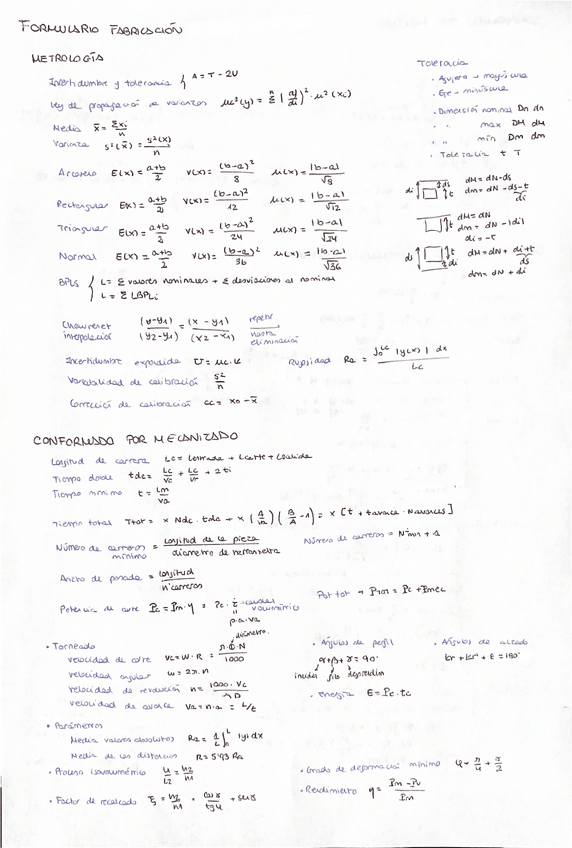 FORMULARIO FABRICACIÓN
METROLOGÍA
Incertidumbre y tolerancia { A = T - 2U
Ley de propagación de varianzas μc²(y) = Σ |df/di|² · μ²(xi)
Media x̄ = Σxi/n
Varianza s²(x̄) = s²(x)/n
Arcoseno E(x) = a+b/2 V(x) = (b-a)²/8 μ(x) = |b-a|/√8
Rectangular E(x) = a+b/2 V(x) = (b-a)²/12 μ(x) = |b-a|/√12
Triangular E(x) = a+b/2 V(x) = (b-a)²/24 μ(x) = |b-a|/√24
Normal E(x) = a+b/2 V(x) = (b-a)²/36 μ(x) = |b-a|/√36
BPLs { L = Σ valores nominales + Σ desviaciones al nominal
L = Σ LBPLi
interpolación (y-y1)/(y2-y1) = (x-x1)/(x2-x1) repetir hasta eliminación
Incertidumbre expandida U = μc · k
Variabilidad de calibración s²/n
Corrección de calibración cc = x0 - x̄
Rugosidad Ra = ∫0^Lc |y(x)| dx / Lc
Tolerancia
· Agujero → mayúscula
· Eje → minúscula
· Dimensión nominal Dn dn
" " max DM dM
" " min Dm dm
· Tolerancia t T
dM = dN - ds
dm = dN - ds - t
di
dM = dN
dm = dN - |di|
di = -t
dM = dN + di + t
ds
dm = dN + di
CONFORMADO POR MECANIZADO
Longitud de carrera Lc = Lentrada + Lcorte + Lsalida
Tiempo donde tdc = Lc/Vc + Lc/Vr + 2ti
Tiempo mínimo t = Lm/Va
Tiempo total Ttot = x Ndc · tdc + x (A/va) (B/A - 1) = x [t + tavance · Navances]
Número de carreras mínimo = longitud de la pieza / diámetro de herramienta
Número de carreras = Nmin + 1
Ancho de pasada = longitud / nºcarreras
Potencia de corte Pc = Pm · η = Pc · ż → caudal volumétrico
p · a · va
Pot tot → Ptot = Pc + Pmec
• Torneado
velocidad de corte Vc = W · R = π·D·N/1000 diámetro
velocidad angular ω = 2π·n
velocidad de revolución n = 1000·Vc/πD
velocidad de avance Va = n·a = L/t
• Ángulos de perfil
α + β + γ = 90°
incidencia filo desprendim
• Ángulos de alzado
kr + kr' + ε = 180°
• energía E = Pc · tc
• Parámetros
Media valores absolutos Ra = 1/L ∫0^L |y| dx
Media de las distancias R = 5'93 Ra
• Proceso isovolumétrico L1/L2 = h2/h1
• Factor de recalcado ξ = h2/h1 = cos γ/tg φ + sen γ
• Grado de deformación mínimo φ = π/4 + γ/2
• Rendimiento η = Pm - Pv / Pm